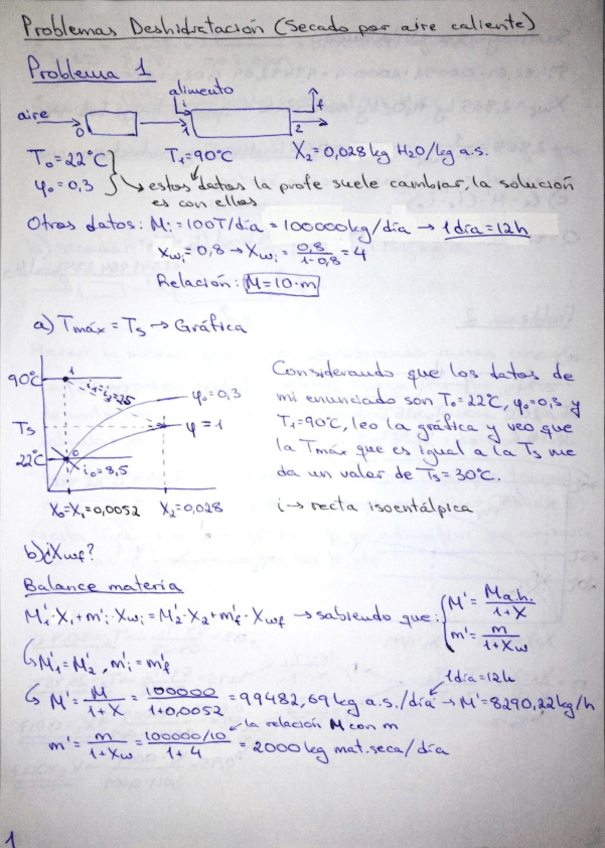 Problemas Deshidratación (Secado por aire caliente)
Problema 1
alimento
aire → i f
0 1 2
T₀=22°C T₁=90°C X₂=0,028 kg H₂O/kg a.s.
φ₀=0,3 estos datos la profe suele cambiar, la solución
es con ellos
Otros datos: Mᵢ=100T/día=100000kg/día → 1día=12h
xwᵢ=0,8 → Xwᵢ = 0,8/1-0,8 = 4
Relación: M=10·m
a) Tmáx = Ts → Gráfica
90°C 1
φ₀=0,3
Ts φ=1
22°C 0 i₀=8,5
X₀=X₁=0,0052 X₂=0,028
Considerando que los datos de
mi enunciado son T₀=22°C, φ₀=0,3 y
T₁=90°C, leo la gráfica y veo que
la Tmáx que es igual a la Ts me
da un valor de Ts=30°C.
i → recta isoentálpica
b) ¿Xwf?
Balance materia
M'₁·X₁+m'ᵢ·Xwᵢ=M'₂·X₂+m'f·Xwf → sabiendo que: { M'=Ma.h./1+X
m'=m/1+Xw
↳ M'₁=M'₂, m'ᵢ=m'f
1día=12h
↳ M'=M/1+X=100000/1+0,0052=99482,69 kg a.s./día → M'=8290,22kg/h
la relación M con m
m'=m/1+Xw=100000/10/1+4=2000kg mat.seca/día
1